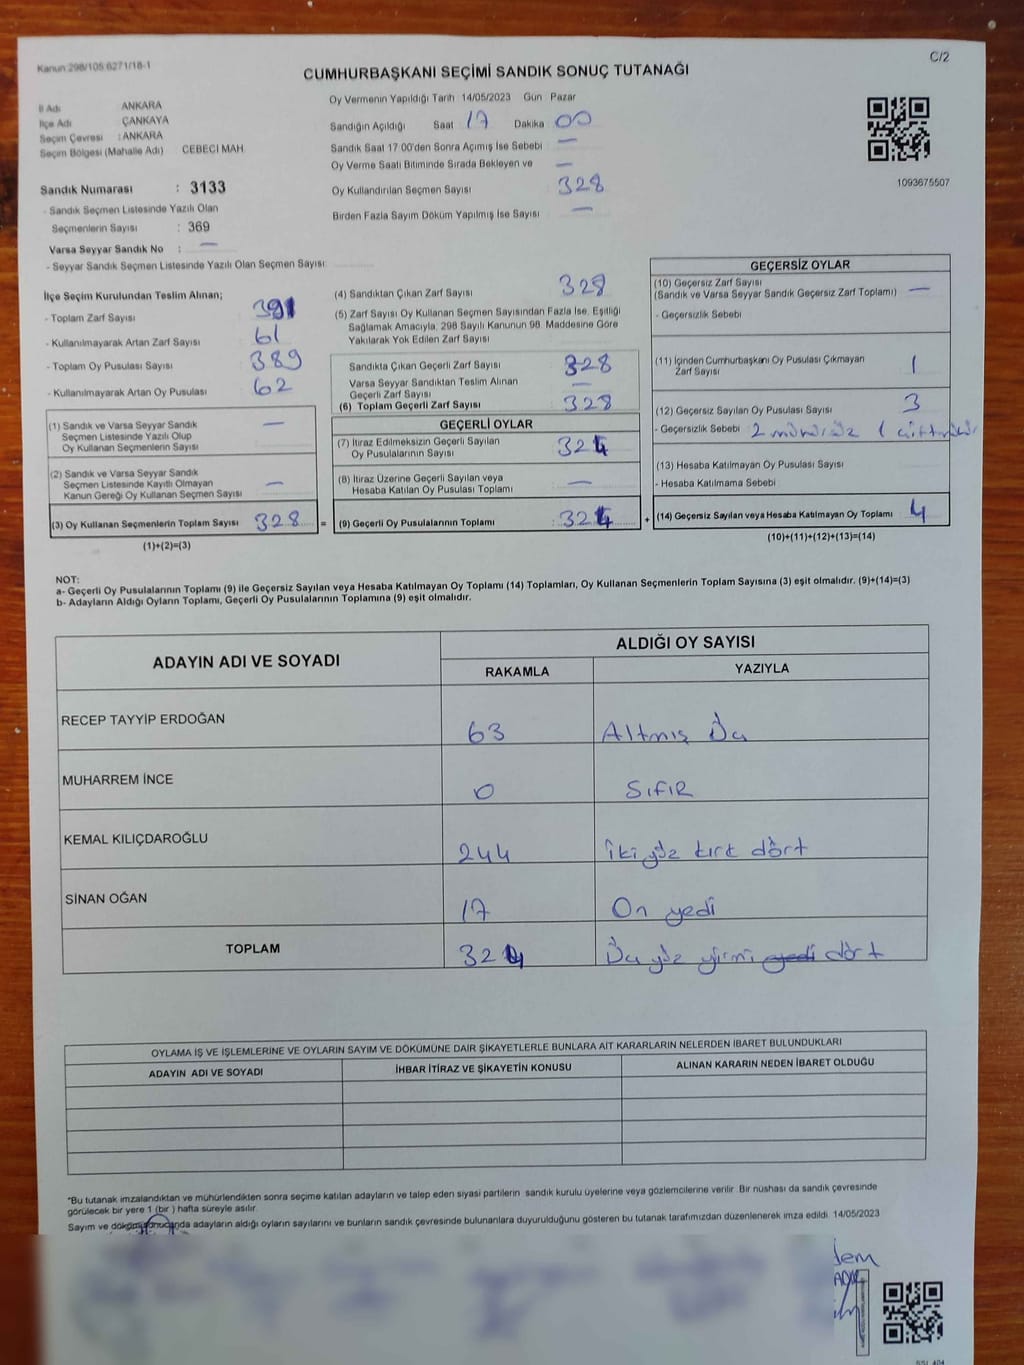 Kanun:298/105 6271/18-1
C/2
CUMHURBAŞKANI SEÇİMİ SANDIK SONUÇ TUTANAĞI
İl Adı ANKARA
İlçe Adı ÇANKAYA
Seçim Çevresi : ANKARA
Seçim Bölgesi (Mahalle Adı) CEBECİ MAH.
Sandık Numarası : 3133
- Sandık Seçmen Listesinde Yazılı Olan
Seçmenlerin Sayısı : 369
Varsa Seyyar Sandık No : —
- Seyyar Sandık Seçmen Listesinde Yazılı Olan Seçmen Sayısı:
Oy Vermenin Yapıldığı Tarih 14/05/2023 Gün Pazar
Sandığın Açıldığı Saat 17 Dakika 00
Sandık Saat 17:00'den Sonra Açımış İse Sebebi —
Oy Verme Saati Bitiminde Sırada Bekleyen ve —
Oy Kullandırılan Seçmen Sayısı 328
Birden Fazla Sayım Döküm Yapılmış İse Sayısı —
1093675507
İlçe Seçim Kurulundan Teslim Alınan;
- Toplam Zarf Sayısı 391
- Kullanılmayarak Artan Zarf Sayısı 61
- Toplam Oy Pusulası Sayısı 389
- Kullanılmayarak Artan Oy Pusulası 62
(1) Sandık ve Varsa Seyyar Sandık
Seçmen Listesinde Yazılı Olup
Oy Kullanan Seçmenlerin Sayısı —
(2) Sandık ve Varsa Seyyar Sandık
Seçmen Listesinde Kayıtlı Olmayan
Kanun Gereği Oy Kullanan Seçmen Sayısı —
(3) Oy Kullanan Seçmenlerin Toplam Sayısı 328 =
(1)+(2)=(3)
(4) Sandıktan Çıkan Zarf Sayısı 328
(5) Zarf Sayısı Oy Kullanan Seçmen Sayısından Fazla İse, Eşitliği
Sağlamak Amacıyla, 298 Sayılı Kanunun 98. Maddesine Göre
Yakılarak Yok Edilen Zarf Sayısı
Sandıkta Çıkan Geçerli Zarf Sayısı 328
Varsa Seyyar Sandıktan Teslim Alınan
Geçerli Zarf Sayısı —
(6) Toplam Geçerli Zarf Sayısı 328
GEÇERLİ OYLAR
(7) İtiraz Edilmeksizin Geçerli Sayılan
Oy Pusulalarının Sayısı 324
(8) İtiraz Üzerine Geçerli Sayılan veya
Hesaba Katılan Oy Pusulası Toplamı —
(9) Geçerli Oy Pusulalarının Toplamı : 324 +
GEÇERSİZ OYLAR
(10) Geçersiz Zarf Sayısı
(Sandık ve Varsa Seyyar Sandık Geçersiz Zarf Toplamı) —
- Geçersizlik Sebebi
(11) İçinden Cumhurbaşkanı Oy Pusulası Çıkmayan
Zarf Sayısı 1
(12) Geçersiz Sayılan Oy Pusulası Sayısı 3
- Geçersizlik Sebebi 2 mühürsüz 1 çift mühür
(13) Hesaba Katılmayan Oy Pusulası Sayısı
- Hesaba Katılmama Sebebi
(14) Geçersiz Sayılan veya Hesaba Katılmayan Oy Toplamı 4
(10)+(11)+(12)+(13)=(14)
NOT:
a- Geçerli Oy Pusulalarının Toplamı (9) ile Geçersiz Sayılan veya Hesaba Katılmayan Oy Toplamı (14) Toplamları, Oy Kullanan Seçmenlerin Toplam Sayısına (3) eşit olmalıdır. (9)+(14)=(3)
b- Adayların Aldığı Oyların Toplamı, Geçerli Oy Pusulalarının Toplamına (9) eşit olmalıdır.
ADAYIN ADI VE SOYADI
ALDIĞI OY SAYISI
RAKAMLA YAZIYLA
RECEP TAYYİP ERDOĞAN 63 Altmış Üç
MUHARREM İNCE 0 SIFIR
KEMAL KILIÇDAROĞLU 244 İki yüz kırk dört
SİNAN OĞAN 17 On yedi
TOPLAM 324 Üç yüz yirmi yedi dört
OYLAMA İŞ VE İŞLEMLERİNE VE OYLARIN SAYIM VE DÖKÜMÜNE DAİR ŞİKAYETLERLE BUNLARA AİT KARARLARIN NELERDEN İBARET BULUNDUKLARI
ADAYIN ADI VE SOYADI İHBAR İTİRAZ VE ŞİKAYETİN KONUSU ALINAN KARARIN NEDEN İBARET OLDUĞU
*Bu tutanak imzalandıktan ve mühürlendikten sonra seçime katılan adayların ve talep eden siyasi partilerin sandık kurulu üyelerine veya gözlemcilerine verilir. Bir nüshası da sandık çevresinde
görülecek bir yere 1 (bir ) hafta süreyle asılır.
Sayım ve dökümü sonucunda adayların aldığı oyların sayılarını ve bunların sandık çevresinde bulunanlara duyurulduğunu gösteren bu tutanak tarafımızdan düzenlenerek imza edildi. 14/05/2023